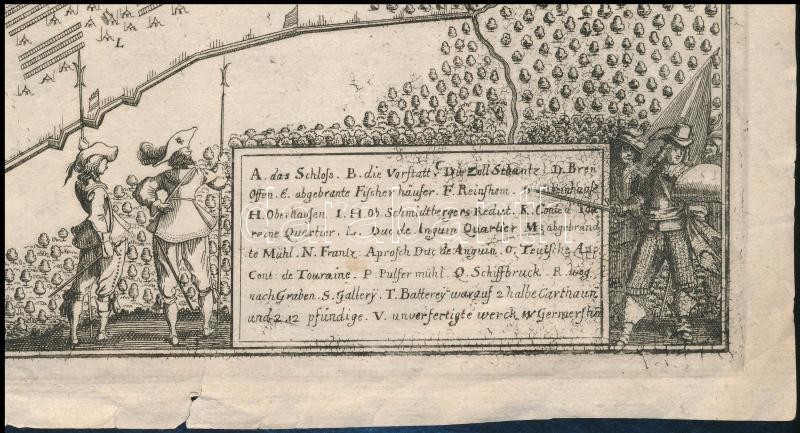 L
A. das Schloss. B. die Vorstatt C Die Zoll Schantz. D. Bren
Offen. E. abgebrante Fischerhäuser. F. Reinshem.
H. Oberhausen. I. H. Ob: Schmidtbergers Redut. K. Conte d Tou
reine Quartier. L. Duc de Anguin Quartier M. abgebrand
te Mühl. N. Frantz: Aprosch Duc de Anguin. O. Teutsche App
Cont: de Touraine. P Pulfer mühl. Q. Schiffbruck. R. weg
nach Graben. S. Gallerÿ. T. Batterey warauf 2 halbe Carthaun
und 2.12 pfündige. V. unverfertigte werck W Germershm